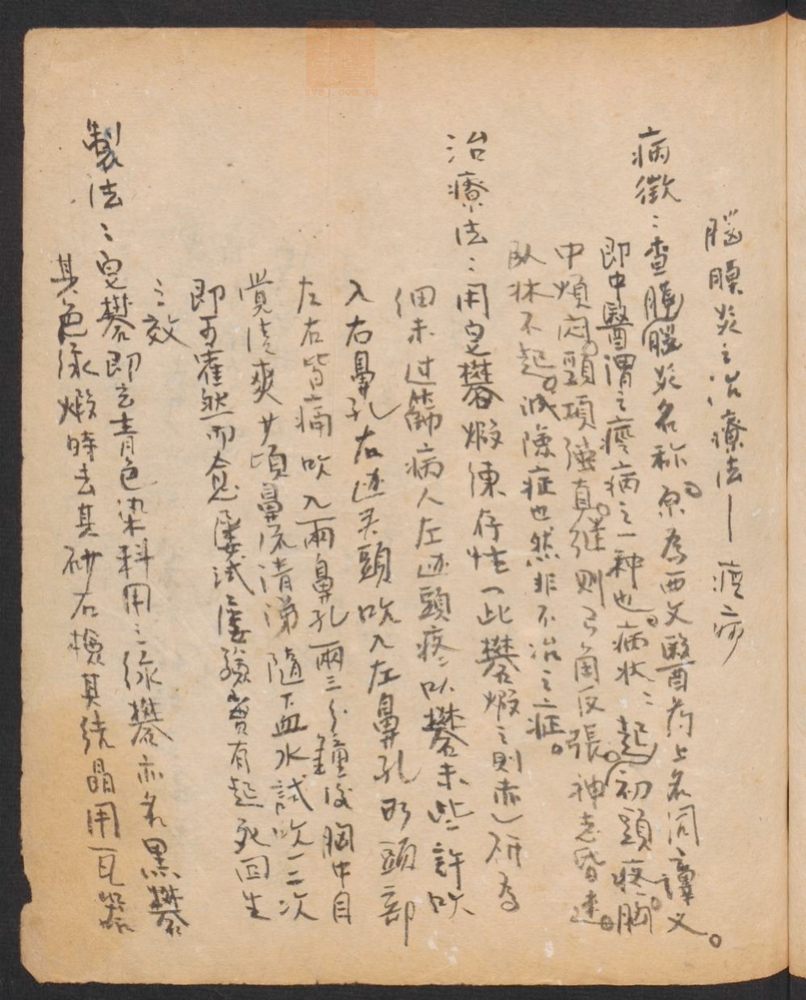 腦膜炎之治療法—痙病
病徵：查膜腦炎名称。原為西文醫葯上名詞之譯义。
即中醫謂之痙病之一种也。病状：起初頭疼。胸
中煩悶。頭項強直。继则弓角反張。神志昏迷。
臥牀不起。誠險症也然非不治之症。
治療法：用皂礬煅煉存性（此礬煅之則赤）研為
细末过篩病人左边頭疼以礬末些許吹
入右鼻孔右边头頭吹入左鼻孔部
左右皆痛吹入兩鼻孔兩三分鐘後胸中自
覺清爽少頃鼻流清涕隨下血水試吹一二次
即可霍然而愈屢試屢驗實有起死回生
之效
製法：皂礬即之青色染料用之綠礬亦名黑礬
其色绿煅時去其砂石檢其结晶用瓦器